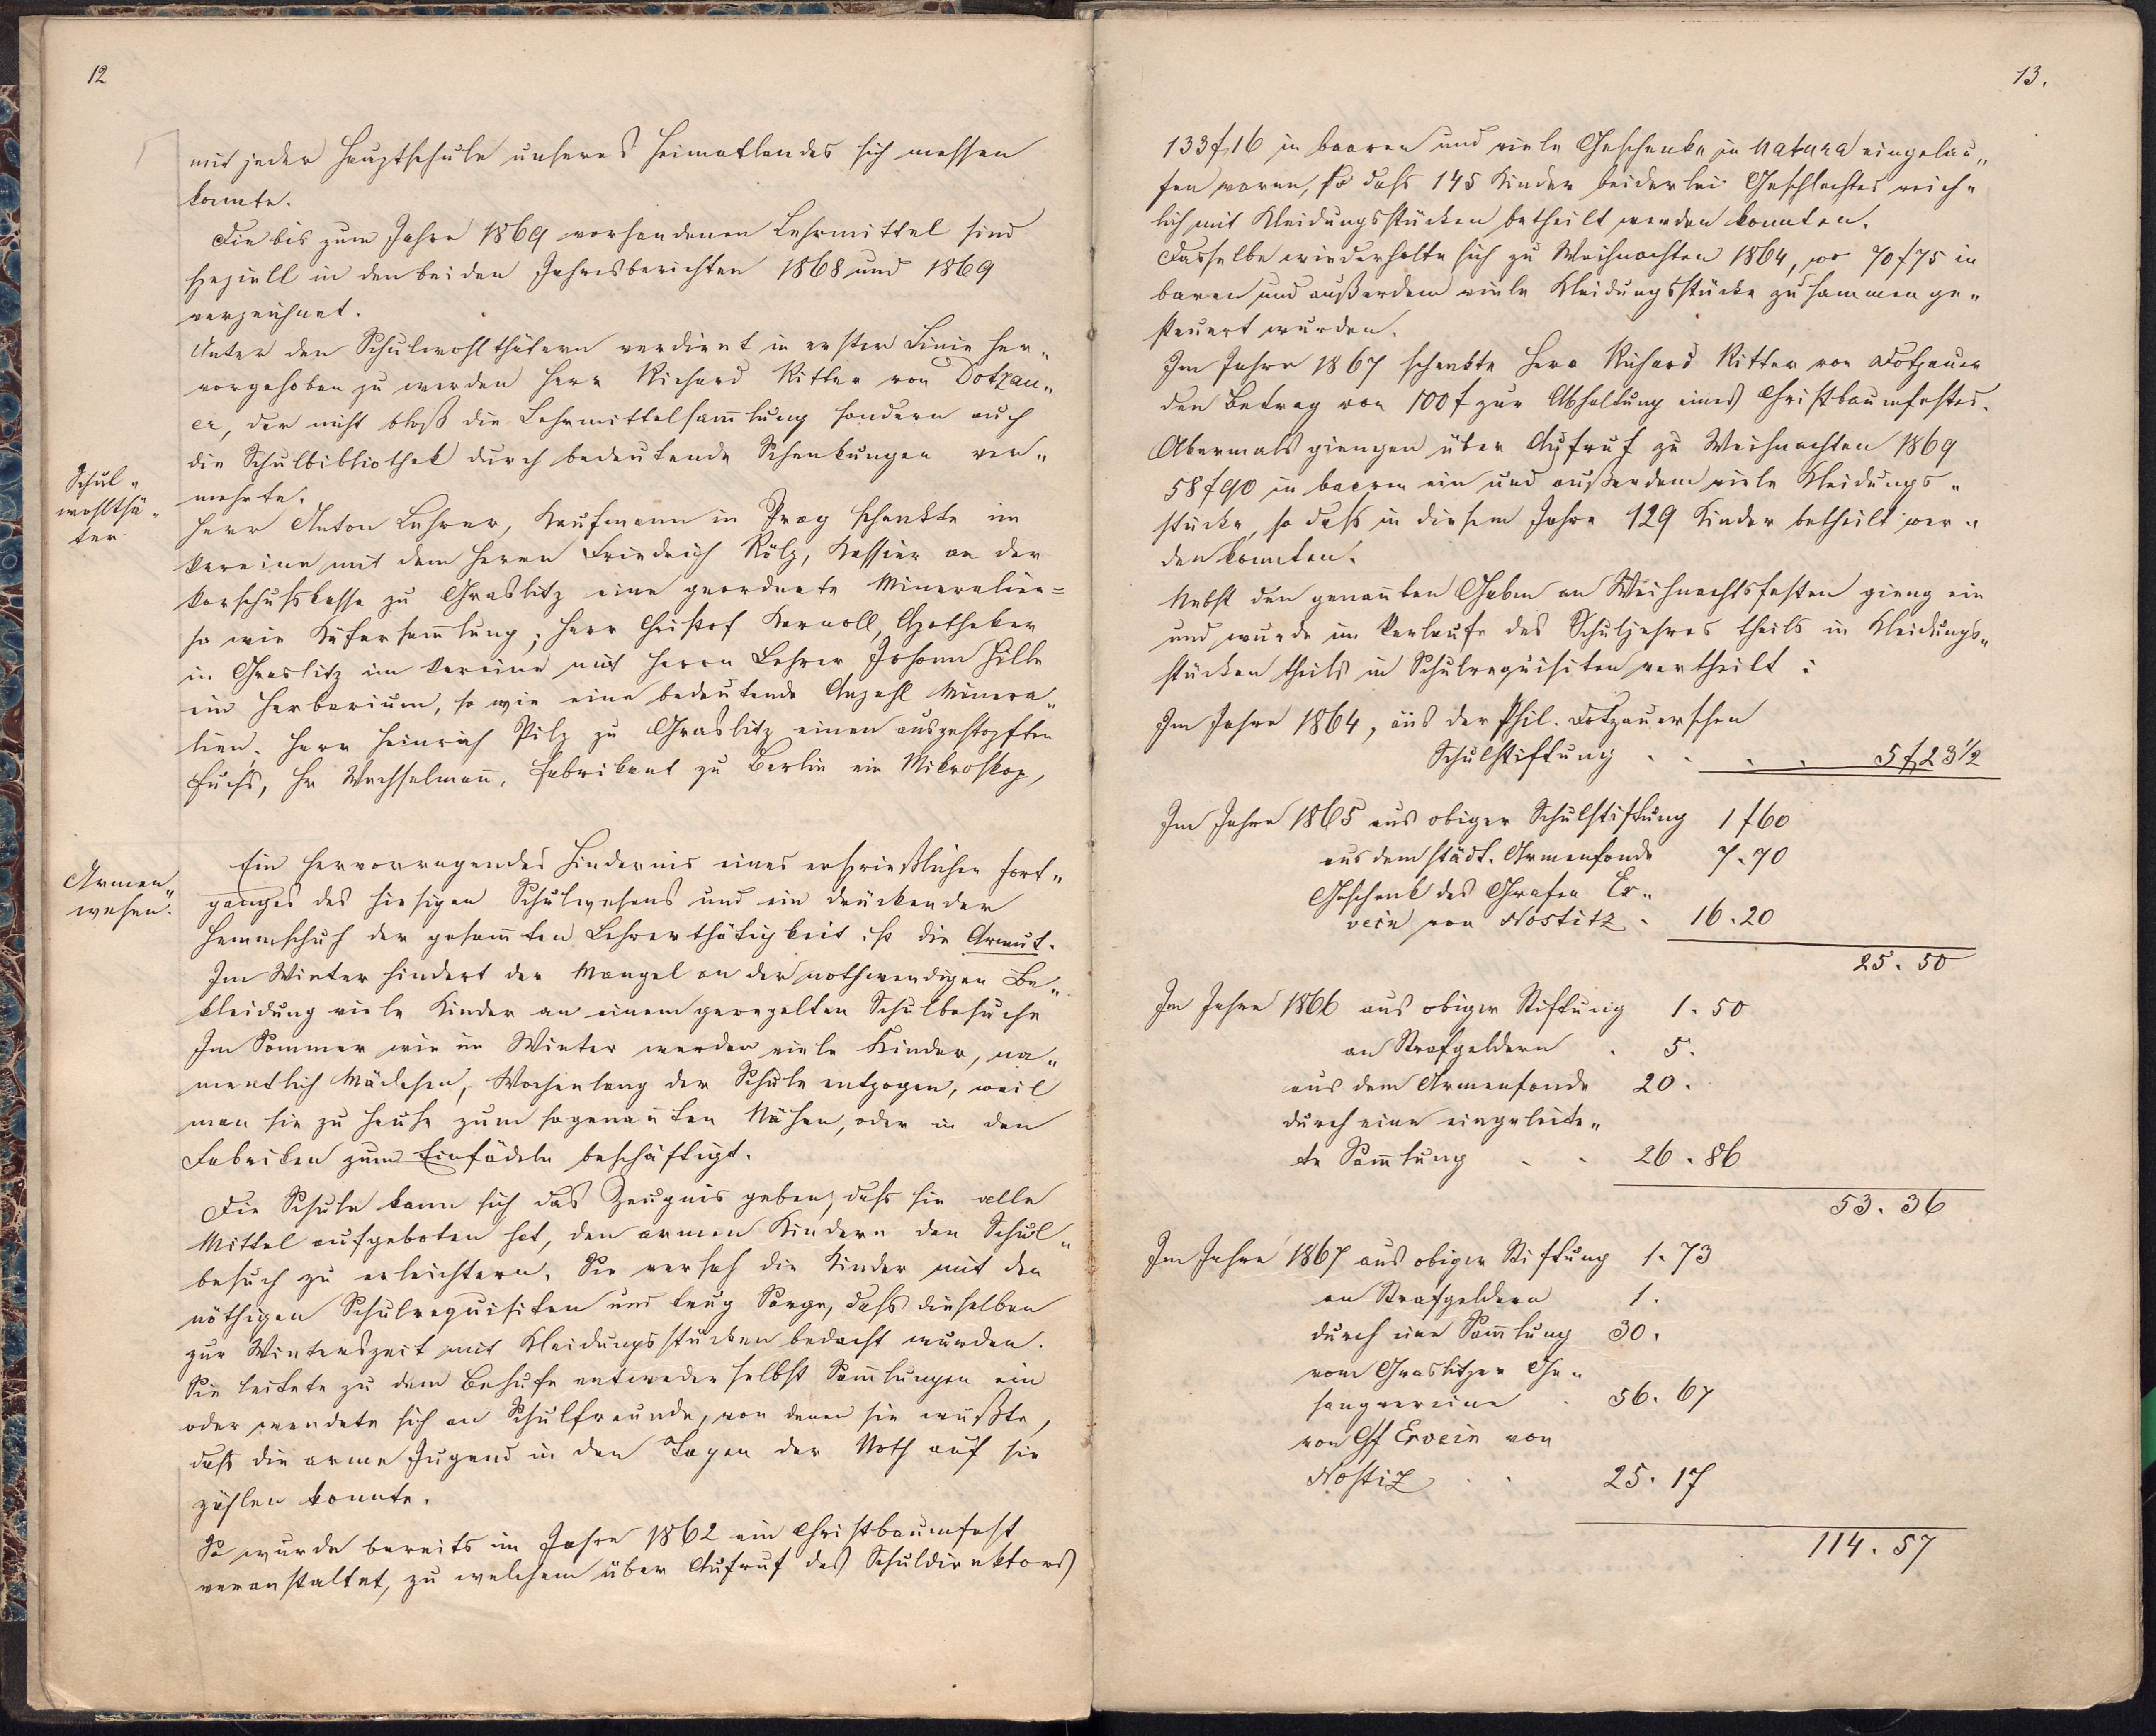 12
mit jeder Hauptschule unseres Heimatlandes sich messen
konnte.
Die bis zum Jahre 1869 vorhandenen Lehrmittel sind
speziell in den beiden Jahresberichten 1868 und 1869
verzeichnet.
Unter den Schulwohlthätern verdient in erster Linie her„
vorgehoben zu werden Herr Richard Ritter von Dotzau„
er, der nicht bloß die Lehrmittelsam̅lung sondern auch
die Schulbibliothek durch bedeutende Schenkungen ver„
Schul„
wohlthä„
ter.
mehrte.
Herr Anton Lehrer, Kaufmann in Prag schenkte im
Vereine mit dem Herrn Friedrich Kölz, Kassier an der
Vorschußkasse zu Graslitz eine geordnete Mineralien=
so wie Käfersam̅lung; Herr Christof Karnoll, Apotheker
in Graslitz im Vereine mit Herrn Lehrer Johann Hille
ein Herbarium, so wie eine bedeutende Anzahl Minera„
lien; Herr Heinrich Pilz zu Graslitz einen ausgestopften
Fuchs, Hr Wechselman̅, Fabrikant zu Berlin ein Mikroskop,
Armen„
wesen.
Ein hervorragendes Hindernis eines ersprießlichen Fort„
ganges des hiesigen Schulwesens und ein drückender
Hemmschuh der gesam̅ten Lehrerthätigkeit ist die Armut.
Im Winter hindert der Mangel an der nothwendigen Be„
kleidung viele Kinder an einem geregelten Schulbesuche
Im Sommer wie im Winter werden viele Kinder, na„
mentlich Mädchen, Wochenlang der Schule entzogen, weil
man sie zu Hause zum sogenan̅ten Nähen, oder in den
Fabriken zum Einfädeln beschäftigt.
Die Schule kann sich das Zeugnis geben, dass sie alle
Mittel aufgeboten hat, den armen Kindern den Schul„
besuch zu erleichtern. Sie versah die Kinder mit den
nöthigen Schulrequisiten und trug Sorge, dass dieselben
zur Winterszeit mit Kleidungsstücken bedacht wurden.
Sie leitete zu dem Behufe entweder selbst Sam̅lungen ein
oder wendete sich an Schulfreunde, von denen sie wußte,
dass die arme Jugend in den Tagen der Noth auf sie
zählen konnte.
So wurde bereits im Jahre 1862 ein Christbaumfest
veranstaltet, zu welchem über Aufruf des Schuldirektors
13.
133 f 16 in baaren und viele Geschenke in Natura eingelau„
fen waren, so dass 145 Kinder beiderlei Geschlechtes reich„
lich mit Kleidungsstücken betheilt werden konnten.
Dasselbe wiederholte sich zu Weihnachten 1864, wo 70 f 75 in
baren und außerdem viele Kleidungsstücke zusammen ge„
steuert wurden.
Im Jahre 1867 schenkte Herr Richard Ritter von Dotzauer
den Betrag von 100 f zur Abhaltung eines Christbaumfestes.
Abermals giengen über Aufruf zu Weihnachten 1869
58 f 90 in baaren ein und außerdem viele Kleidungs„
stücke, so dass in diesem Jahre 129 Kinder betheilt wer„
den konnten.
Nebst den genan̅ten Gaben an Weihnachtsfesten gieng ein
und wurde im Verlaufe des Schuljahres theils in Kleidungs„
stücken theils in Schulrequisiten vertheilt:
Im Jahre 1864, aus der Phil. Dotzauerschen
Schulstiftung . . . . 5 f 23 1/2
Im Jahre 1865 aus obiger Schulstiftung 1 f 60
aus dem städt. Armenfonde 7.70
Geschenk des Grafen Er„
wein von Nostitz . 16.20
25.50
Im Jahre 1866 aus obiger Stiftung 1.50
an Strafgeldern . 5.
aus dem Armenfonde 20.
durch eine eingeleite„
te Sam̅lung . . 26.86
53.36
Im Jahre 1867 aus obiger Stiftung 1.73
an Strafgeldern 1.
durch eine Sam̅lung 30.
vom Graslitzer Ge„
sangvereine . 56.67
von Gf Erwein von
Nostiz . . 25.17
114.57